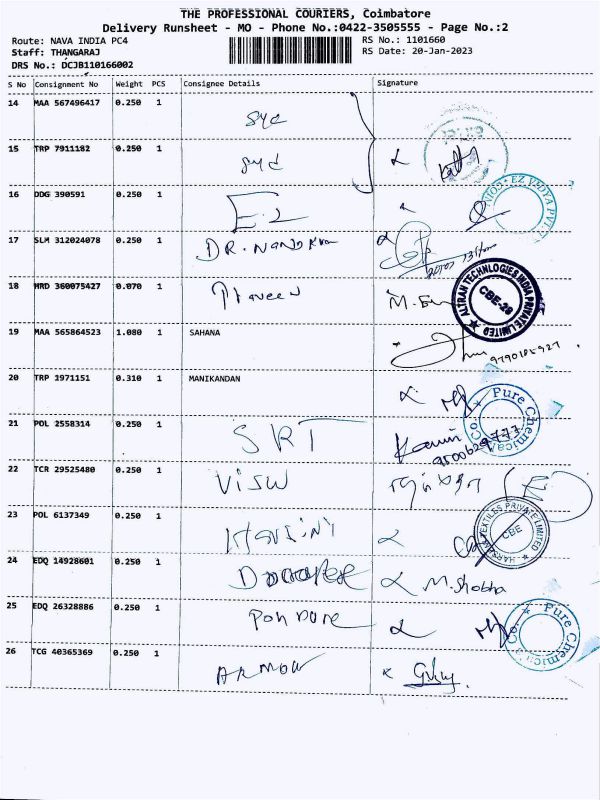 THE PROFESSIONAL COURIERS, Coimbatore
Delivery Runsheet - MO - Phone No.:0422-3505555 - Page No.:2
Route: NAVA INDIA PC4
RS No.: 1101660
Staff: THANGARAJ
RS Date: 20-Jan-2023
DRS No.: DCJB110166002
S No Consignment No Weight PCS Consignee Details Signature
14 MAA 567496417 0.250 1
15 TRP 7911182 0.250 1
16 DDG 390591 0.250 1
EZ VIDYA PVT
17 SLM 312024078 0.250 1 DR. NAND
18 HRD 360075427 0.070 1 Praveen M.
ALTRAN TECHNLOGIES INDIA PRIVATE LIMITED
CBE-28
19 MAA 565864523 1.080 1 SAHANA
20 TRP 1971151 0.310 1 MANIKANDAN
Pure Chemicals Co.
21 POL 2558314 0.250 1 SRT
22 TCR 29525480 0.250 1 VISW
23 POL 6137349 0.250 1
TEXTILES PRIVATE LIMITED
CBE
24 EDQ 14928601 0.250 1 M. Shobha
25 EDQ 26328886 0.250 1 Pon Pure
Pure Chemical Co.
26 TCG 40365369 0.250 1